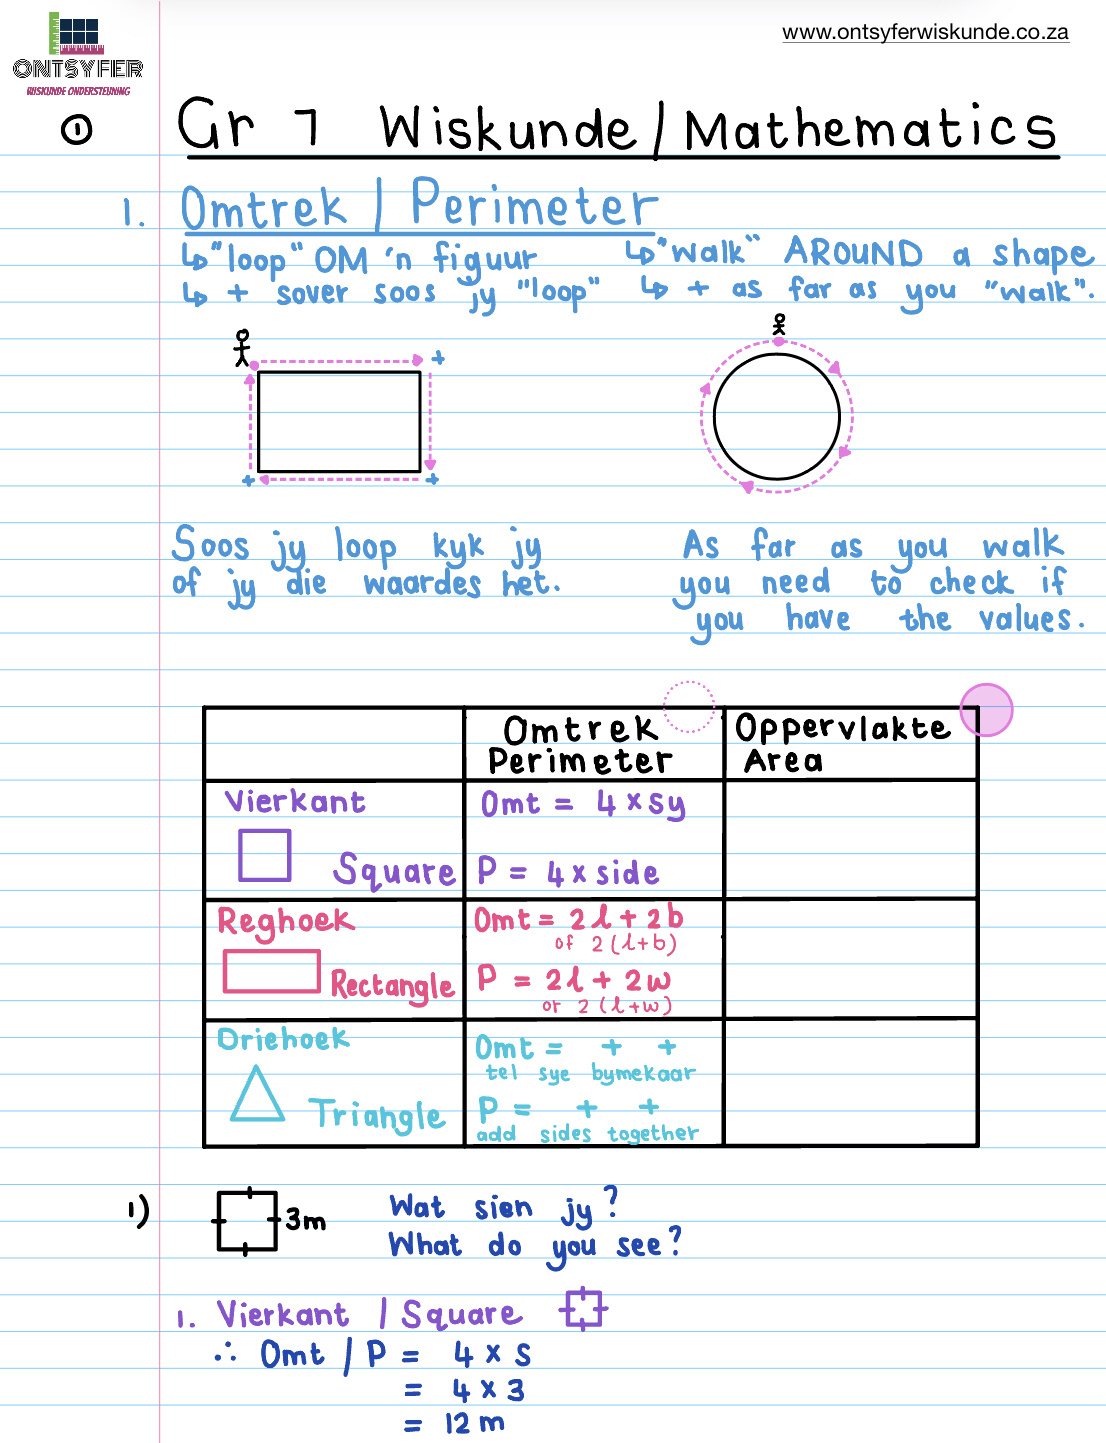 www.ontsyferwiskunde.co.za
ONTSYFER
WISKUNDE ONDERSTEUNING
① Gr 7 Wiskunde / Mathematics
1. Omtrek / Perimeter
↳ "loop" OM 'n figuur
↳ + sover soos jy "loop"
↳ "walk" AROUND a shape
↳ + as far as you "walk".
+
+ +
Soos jy loop kyk jy
of jy die waardes het.
As far as you walk
you need to check if
you have the values.
Omtrek
Perimeter
Oppervlakte
Area
Vierkant
Square
Omt = 4 × sy
P = 4 × side
Reghoek
Rectangle
Omt = 2l + 2b
of 2 (l+b)
P = 2l + 2w
or 2 (l+w)
Driehoek
Triangle
Omt = + +
tel sye bymekaar
P = + +
add sides together
1) 3m
Wat sien jy?
What do you see?
1. Vierkant / Square
∴ Omt / P = 4 × s
= 4 × 3
= 12 m